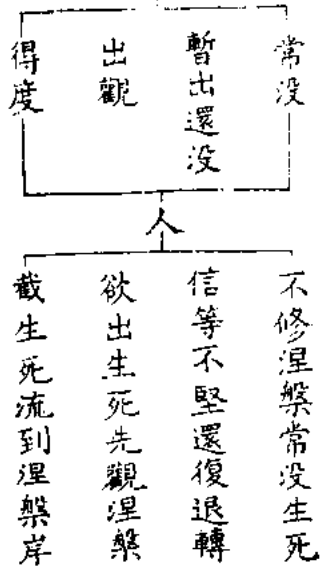 常没
暫出還没
出觀
得度
人
不修涅槃常没生死
信等不堅還復退轉
欲出生死先觀涅槃
截生死流到涅槃岸